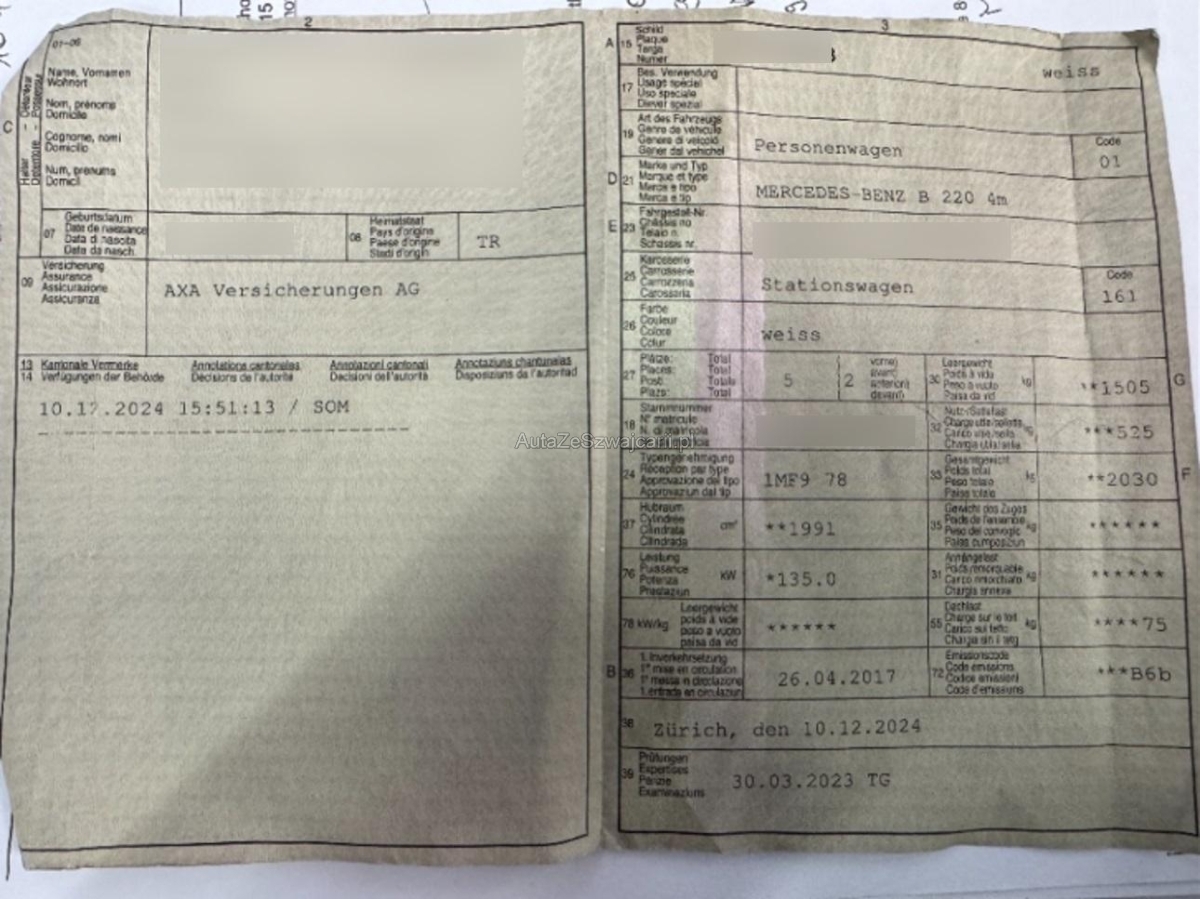 2
01-06
Name, Vornamen
Wohnort
Nom, prénoms
Domicile
Cognome, nomi
Domicilio
Num, prenums
Domicil
C
Halter - Détenteur
Detentore - Possessur
07
Geburtsdatum
Date de naissance
Data di nascita
Data da nasch.
08
Heimatstaat
Pays d'origine
Paese d'origine
Stadi d'origin
TR
09
Versicherung
Assurance
Assicurazione
Assicuranza
AXA Versicherungen AG
13 Kantonale Vermerke Annotations cantonales Annotazioni cantonali Annotaziuns chantunalas
14 Verfügungen der Behörde Décisions de l'autorité Decisioni dell'autorità Disposiziuns da l'autoritad
10.12.2024 15:51:13 / SOM
AutaZeSzwajcarii.pl
3
A 15
Schild
Plaque
Targa
Numer
weiss
17
Bes. Verwendung
Usage spécial
Uso speciale
Diever spezial
19
Art des Fahrzeugs
Genre de véhicule
Genere di veicolo
Gener dal vehichel
Personenwagen
Code
01
D 21
Marke und Typ
Marque et type
Marca e tipo
Marca e tip
MERCEDES-BENZ B 220 4m
E 23
Fahrgestell-Nr.
Châssis no
Telaio n.
Schassis nr.
25
Karosserie
Carrosserie
Carrozzeria
Carossaria
Stationswagen
Code
161
26
Farbe
Couleur
Colore
Colur
weiss
27
Plätze: Total
Places: Total
Posti: Totale
Plazs: Total
5
2
vorne)
avant)
anteriori)
devant)
30
Leergewicht
Poids à vide
Peso a vuoto
Paisa da vid
kg
**1505
G
18
Stammnummer
N° matricule
N. di matricola
32
Nutz-/Sattellast
***525
24
Typengenehmigung
Réception par type
Approvazione del tipo
Approvaziun dal tip
1MF9 78
33
Gesamtgewicht
Poids total
Peso totale
Paisa totala
kg
**2030
F
37
Hubraum
Cylindrée
Cilindrata
Cilindrada
cm³
**1991
35
Gewicht des Zuges
Poids de l'ensemble
Peso del convoglio
Paisa cumposiziun
kg
******
76
Leistung
Puissance
Potenza
Prestaziun
kW
*135.0
31
Anhängelast
Poids remorquable
Carico rimorchiato
Chargia annexa
kg
******
78 kW/kg
Leergewicht
poids à vide
peso a vuoto
paisa da vid
******
55
Dachlast
Charge sur le toit
Carico sul tetto
Chargia sin il tetg
kg
****75
B 36
1. Inverkehrsetzung
1re mise en circulation
1a messa in circolazione
1. entrada en circulaziun
26.04.2017
72
Emissionscode
Code émissions
Codice emissioni
Code d'emissiuns
***B6b
38
Zürich, den 10.12.2024
39
Prüfungen
Expertises
Perizie
Examinaziuns
30.03.2023 TG